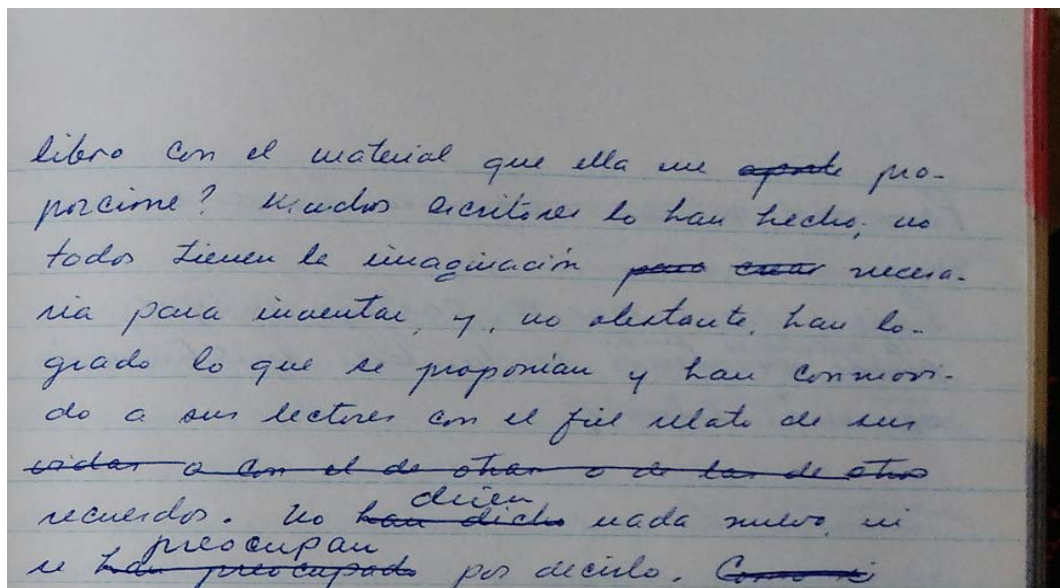 libro con el material que ella me aporte pro-
porcione? Muchos escritores lo han hecho; no
todos tienen la imaginación para crear necesa-
ria para inventar, y, no obstante, han lo-
grado lo que se proponían y han conmovi-
do a sus lectores con el fiel relato de sus
vidas o con el de otras o de las de otros
dicen
recuerdos. No han dicho nada nuevo ni
preocupan
se han preocupado por decirlo. Como si